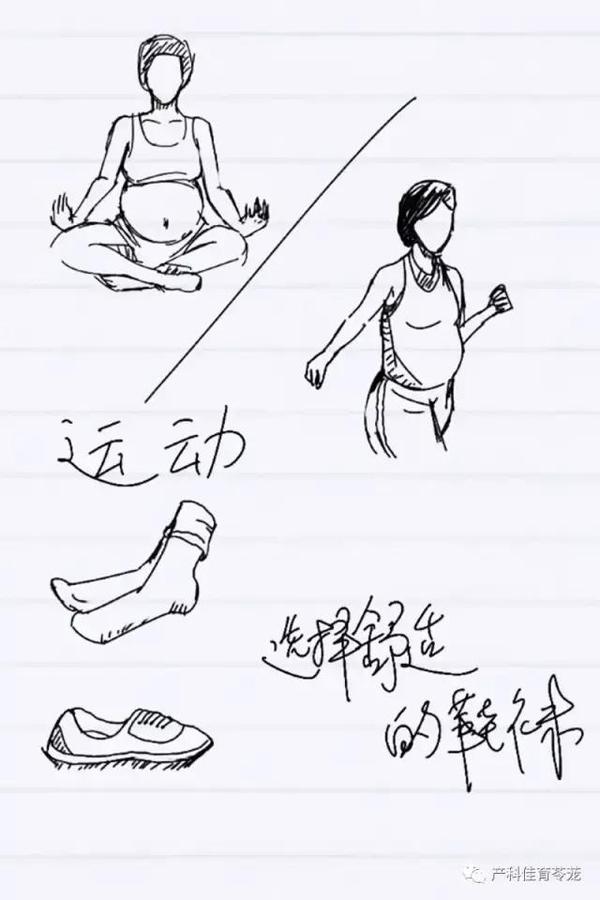 运动
选择舒适
的鞋袜
产科佳育苓茏